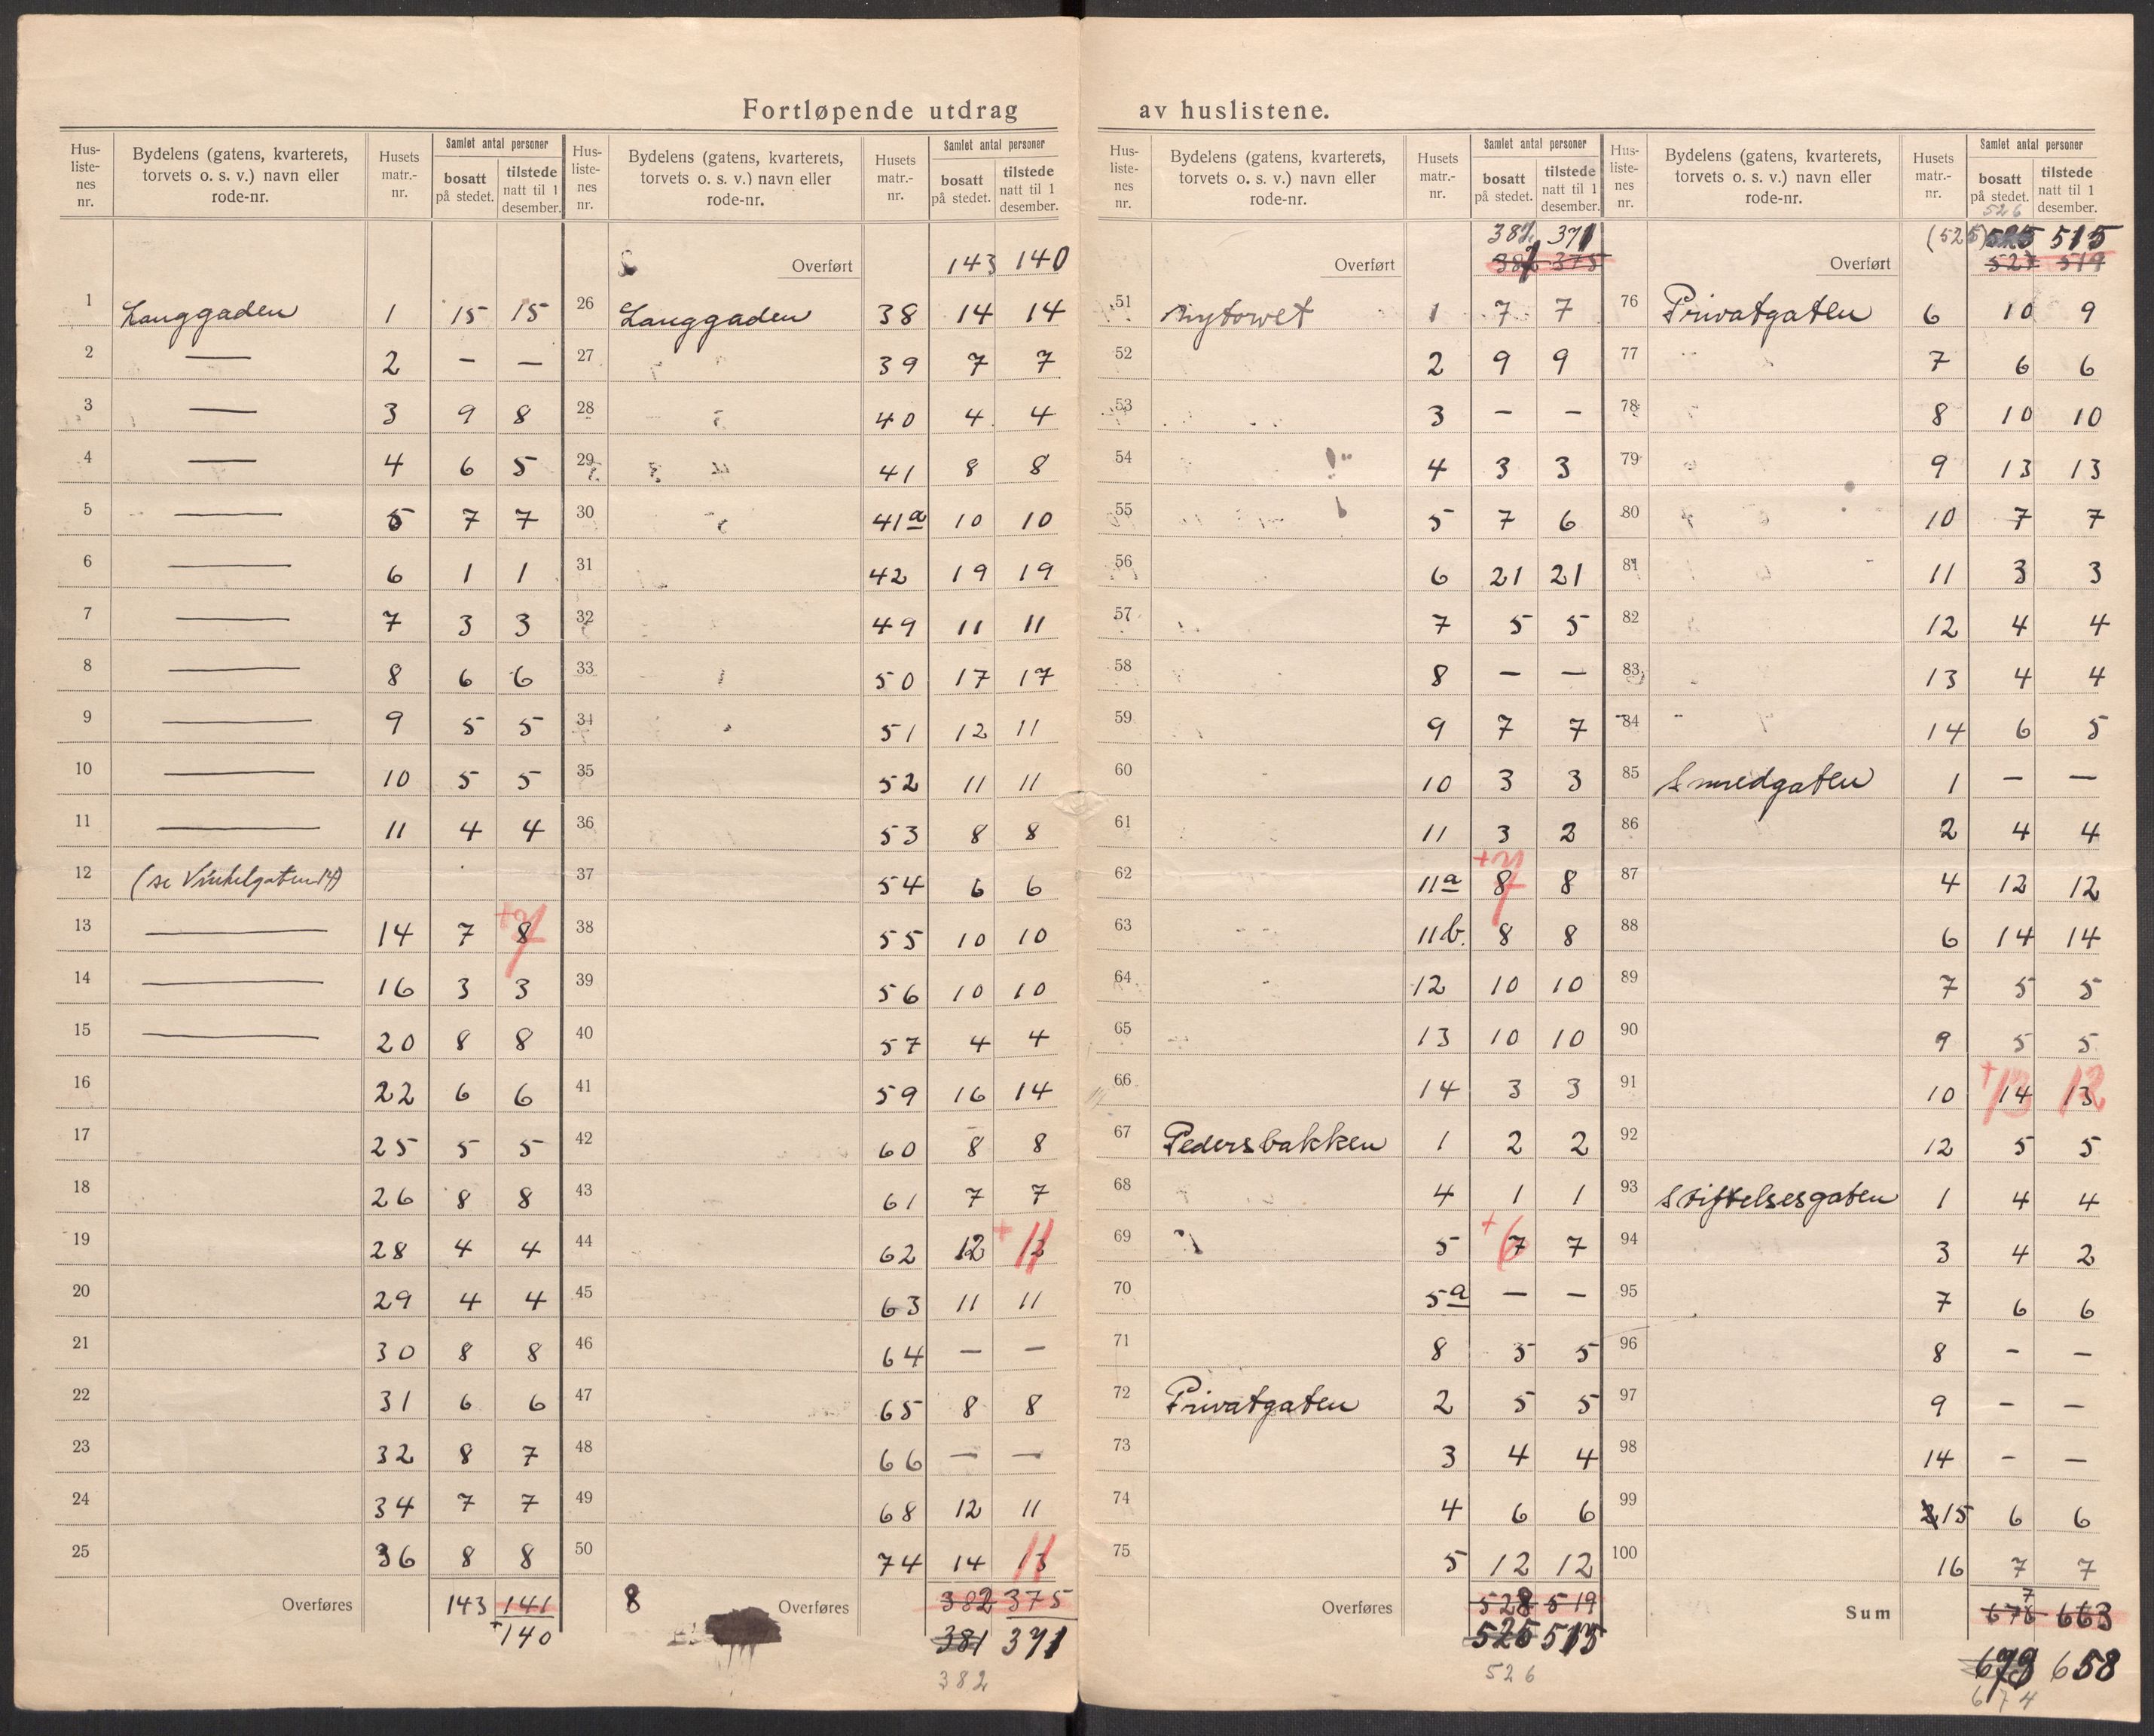 Fortløpende utdrag av huslistene.
Hus-liste-nes nr. | Bydelens (gatens, kvarterets, torvets o. s. v.) navn eller rode-nr. | Husets matr.-nr. | Samlet antal personer bosatt på stedet. | tilstede natt til 1 desember.
1 Langgaden 1 15 15
2 — 2 - -
3 — 3 9 8
4 — 4 6 5
5 — 5 7 7
6 — 6 1 1
7 — 7 3 3
8 — 8 6 6
9 — 9 5 5
10 — 10 5 5
11 — 11 4 4
12 (se Vinkelgaten 14)
13 — 14 7 8 +7
14 — 16 3 3
15 — 20 8 8
16 22 6 6
17 25 5 5
18 26 8 8
19 28 4 4
20 29 4 4
21 30 8 8
22 31 6 6
23 32 8 7
24 34 7 7
25 36 8 8
Overføres 143 141
+140
Hus-liste-nes nr. | Bydelens (gatens, kvarterets, torvets o. s. v.) navn eller rode-nr. | Husets matr.-nr. | Samlet antal personer bosatt på stedet. | tilstede natt til 1 desember.
Overført 143 140
26 Langgaden 38 14 14
27 39 7 7
28 40 4 4
29 41 8 8
30 41a 10 10
31 42 19 19
32 49 11 11
33 50 17 17
34 51 12 11
35 52 11 11
36 53 8 8
37 54 6 6
38 55 10 10
39 56 10 10
40 57 4 4
41 59 16 14
42 60 8 8
43 61 7 7
44 62 12 12 +11
45 63 11 11
46 64 - -
47 65 8 8
48 66 - -
49 68 12 11
50 74 14 13 11
8 Overføres 382 375
381 371
382
Hus-liste-nes nr. | Bydelens (gatens, kvarterets, torvets o. s. v.) navn eller rode-nr. | Husets matr.-nr. | Samlet antal personer bosatt på stedet. | tilstede natt til 1 desember.
371
Overført 382 375
51 Nytorvet 1 7 7
52 2 9 9
53 3 - -
54 4 3 3
55 5 7 6
56 6 21 21
57 7 5 5
58 8 - -
59 9 7 7
60 10 3 3
61 11 3 2
62 11a 8 8 +7
63 11b. 8 8
64 12 10 10
65 13 10 10
66 14 3 3
67 Pedersbakken 1 2 2
68 4 1 1
69 5 7 7 +6
70 5a - -
71 8 5 5
72 Privatgaten 2 5 5
73 3 4 4
74 4 6 6
75 5 12 12
Overføres 528 519
525 515
526
Hus-liste-nes nr. | Bydelens (gatens, kvarterets, torvets o. s. v.) navn eller rode-nr. | Husets matr.-nr. | Samlet antal personer bosatt på stedet. | tilstede natt til 1 desember.
526
(525) 525 515
Overført 527 519
76 Privatgaten 6 10 9
77 7 6 6
78 8 10 10
79 9 13 13
80 10 7 7
81 11 3 3
82 12 4 4
83 13 4 4
84 14 6 5
85 Smedgaten 1 - -
86 2 4 4
87 4 12 12
88 6 14 14
89 7 5 5
90 9 5 5
91 10 14 13 +13 12
92 12 5 5
93 Stiftelsesgaten 1 4 4
94 3 4 2
95 7 6 6
96 8 - -
97 9 - -
98 14 - -
99 15 6 6
100 16 7 7
Sum 676 663
7
658
674